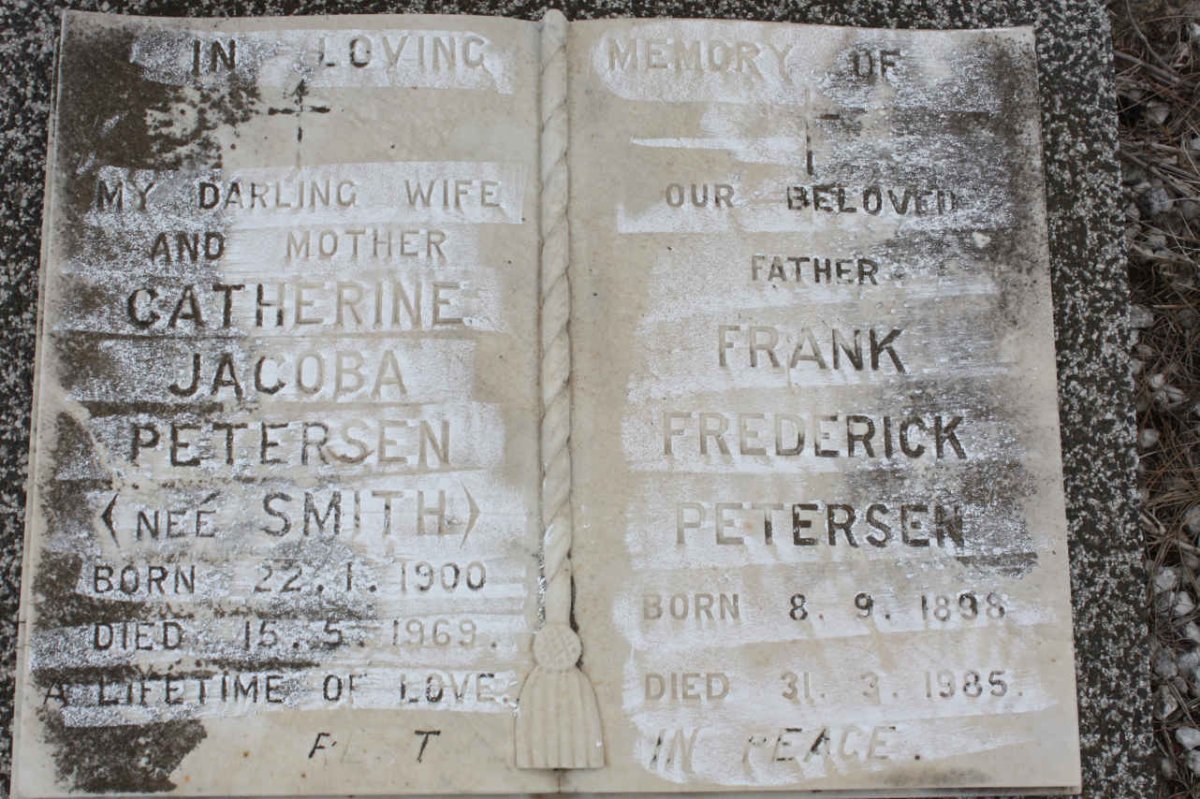 IN LOVING MEMORY OF
MY DARLING WIFE
AND MOTHER
CATHERINE
JACOBA
PETERSEN
(NEÉ SMITH)
BORN 22.1.1900
DIED 15.5.1969.
A LIFETIME OF LOVE.
OUR BELOVED
FATHER
FRANK
FREDERICK
PETERSEN
BORN 8.9.1898
DIED 31.3.1985.
REST IN PEACE.